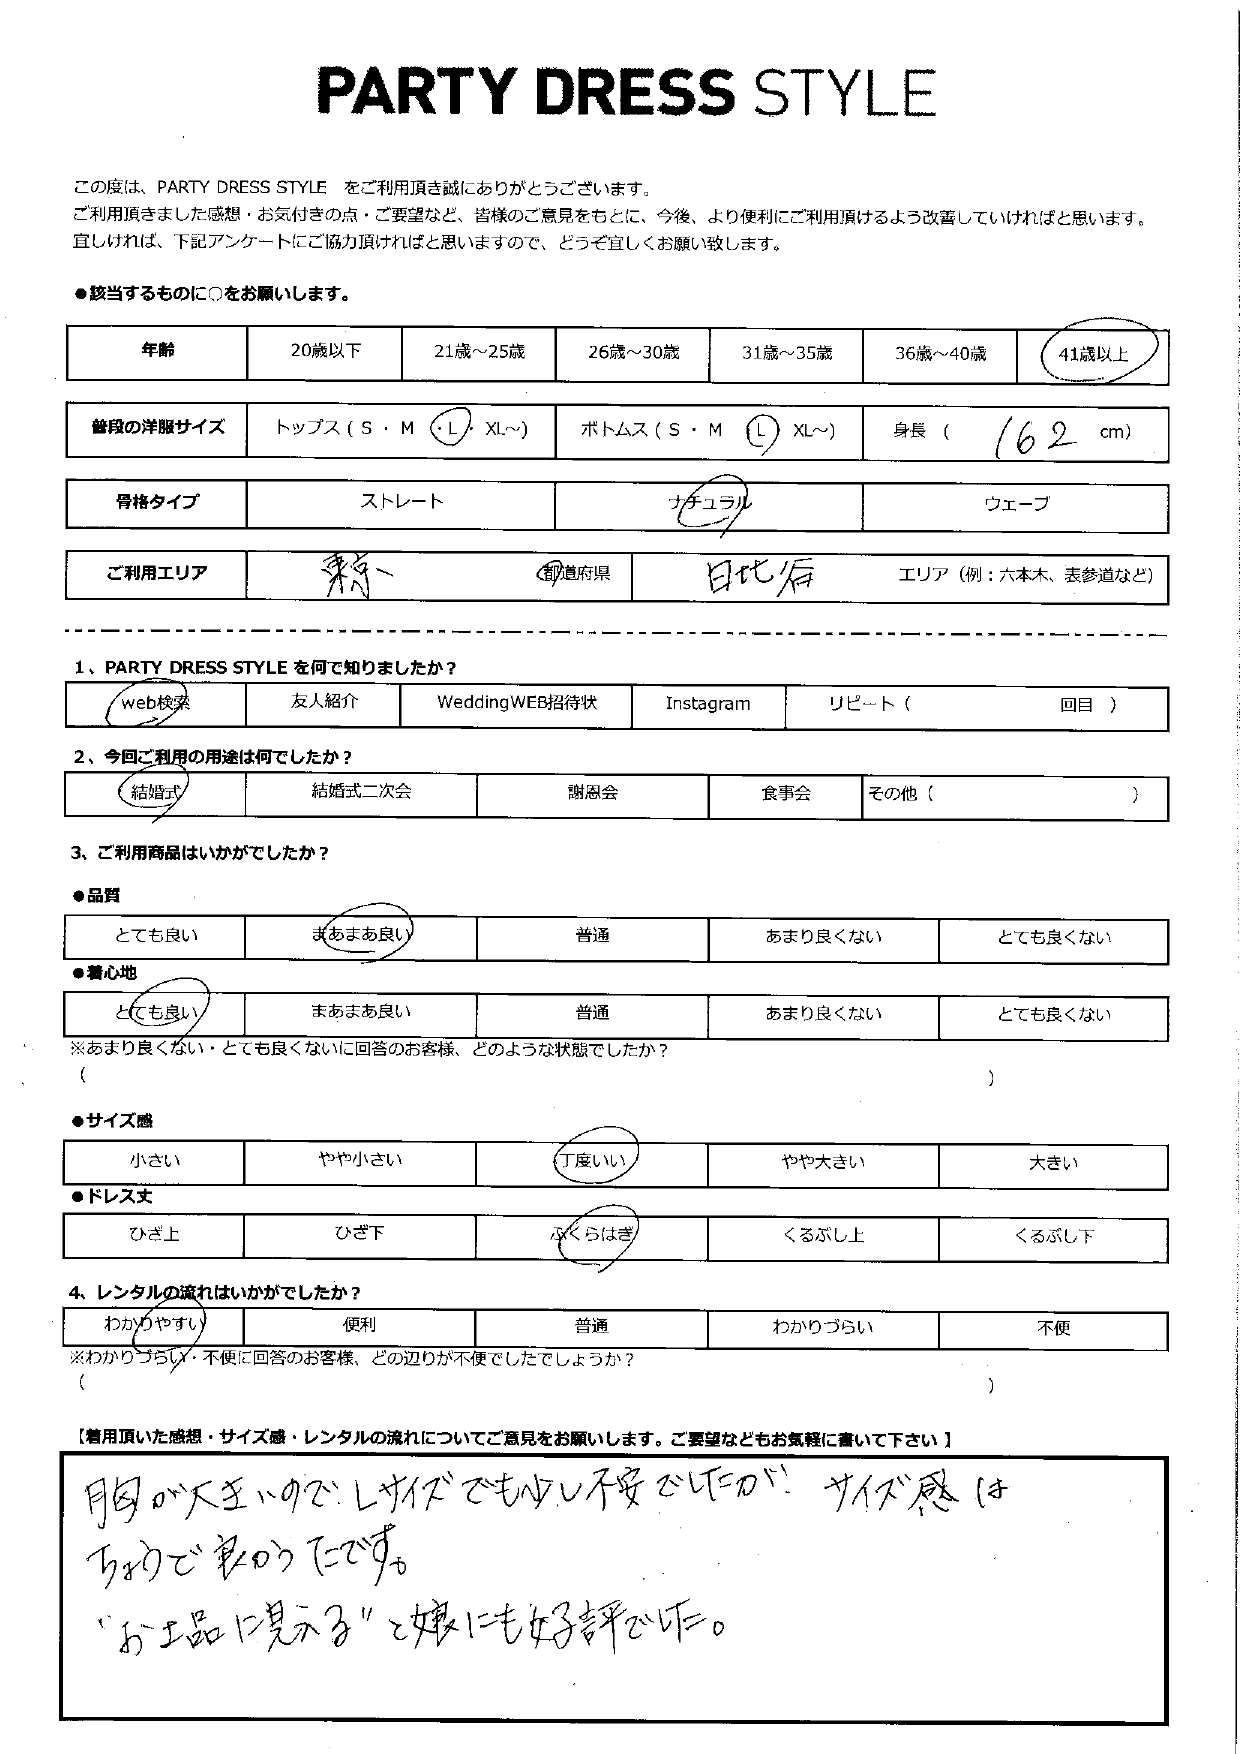 PARTY DRESS STYLE
この度は、PARTY DRESS STYLE をご利用頂き誠にありがとうございます。
ご利用頂きました感想・お気付きの点・ご要望など、皆様のご意見をもとに、今後、より便利にご利用頂けるよう改善していければと思います。
宜しければ、下記アンケートにご協力頂ければと思いますので、どうぞ宜しくお願い致します。
●該当するものに○をお願いします。
年齢 20歳以下 21歳～25歳 26歳～30歳 31歳～35歳 36歳～40歳 41歳以上
普段の洋服サイズ トップス ( S ・ M ・L・ XL～) ボトムス ( S ・ M L XL～) 身長 ( 162 cm)
骨格タイプ ストレート ナチュラル ウェーブ
ご利用エリア 東京 都道府県 日比谷 エリア（例：六本木、表参道など）
1、PARTY DRESS STYLE を何で知りましたか？
web検索 友人紹介 WeddingWEB招待状 Instagram リピート（ 回目 ）
2、今回ご利用の用途は何でしたか？
結婚式 結婚式二次会 謝恩会 食事会 その他（ ）
3、ご利用商品はいかがでしたか？
●品質
とても良い まあまあ良い 普通 あまり良くない とても良くない
●着心地
とても良い まあまあ良い 普通 あまり良くない とても良くない
※あまり良くない・とても良くないに回答のお客様、どのような状態でしたか？
（ ）
●サイズ感
小さい やや小さい 丁度いい やや大きい 大きい
●ドレス丈
ひざ上 ひざ下 ふくらはぎ くるぶし上 くるぶし下
4、レンタルの流れはいかがでしたか？
わかりやすい 便利 普通 わかりづらい 不便
※わかりづらい・不便に回答のお客様、どの辺りが不便でしたでしょうか？
（ ）
【着用頂いた感想・サイズ感・レンタルの流れについてご意見をお願いします。ご要望などもお気軽に書いて下さい 】
胸が大きいので、Lサイズでも少し不安でしたが、サイズ感は
ちょうで良かったです。
“お上品に見える”と娘にも好評でした。